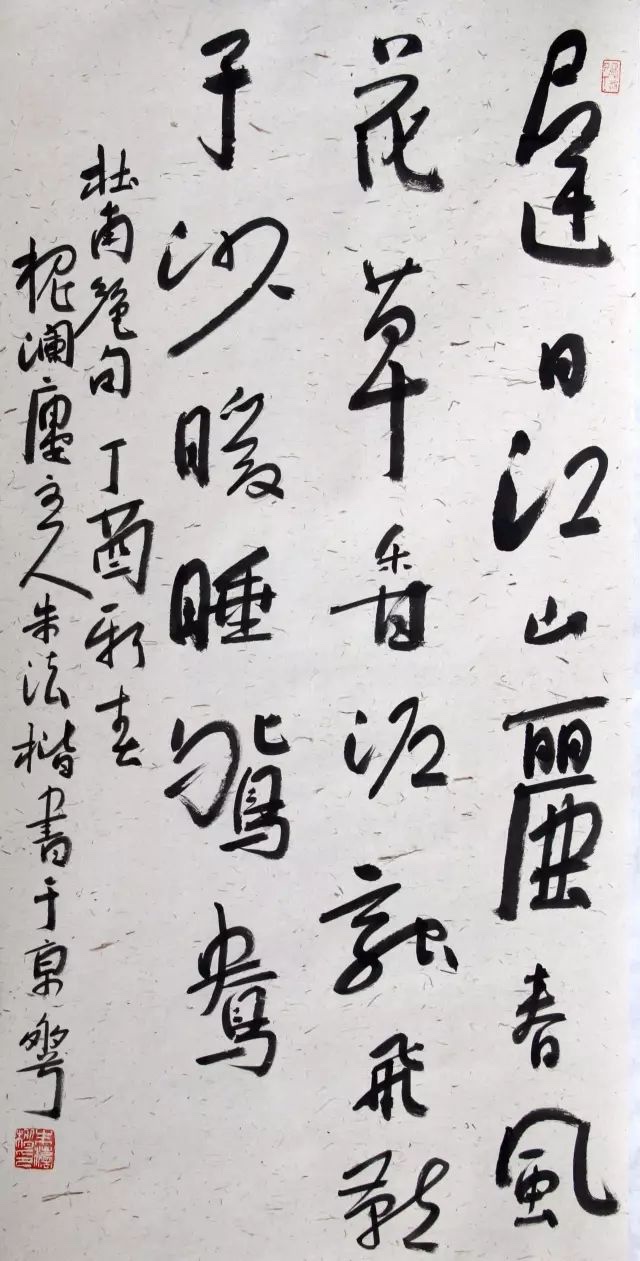 遲日江山麗春風
花草香泥融飛燕
子沙暖睡鴛鴦
杜甫絕句 丁酉新春
瀾廬主人朱法楷書于京華